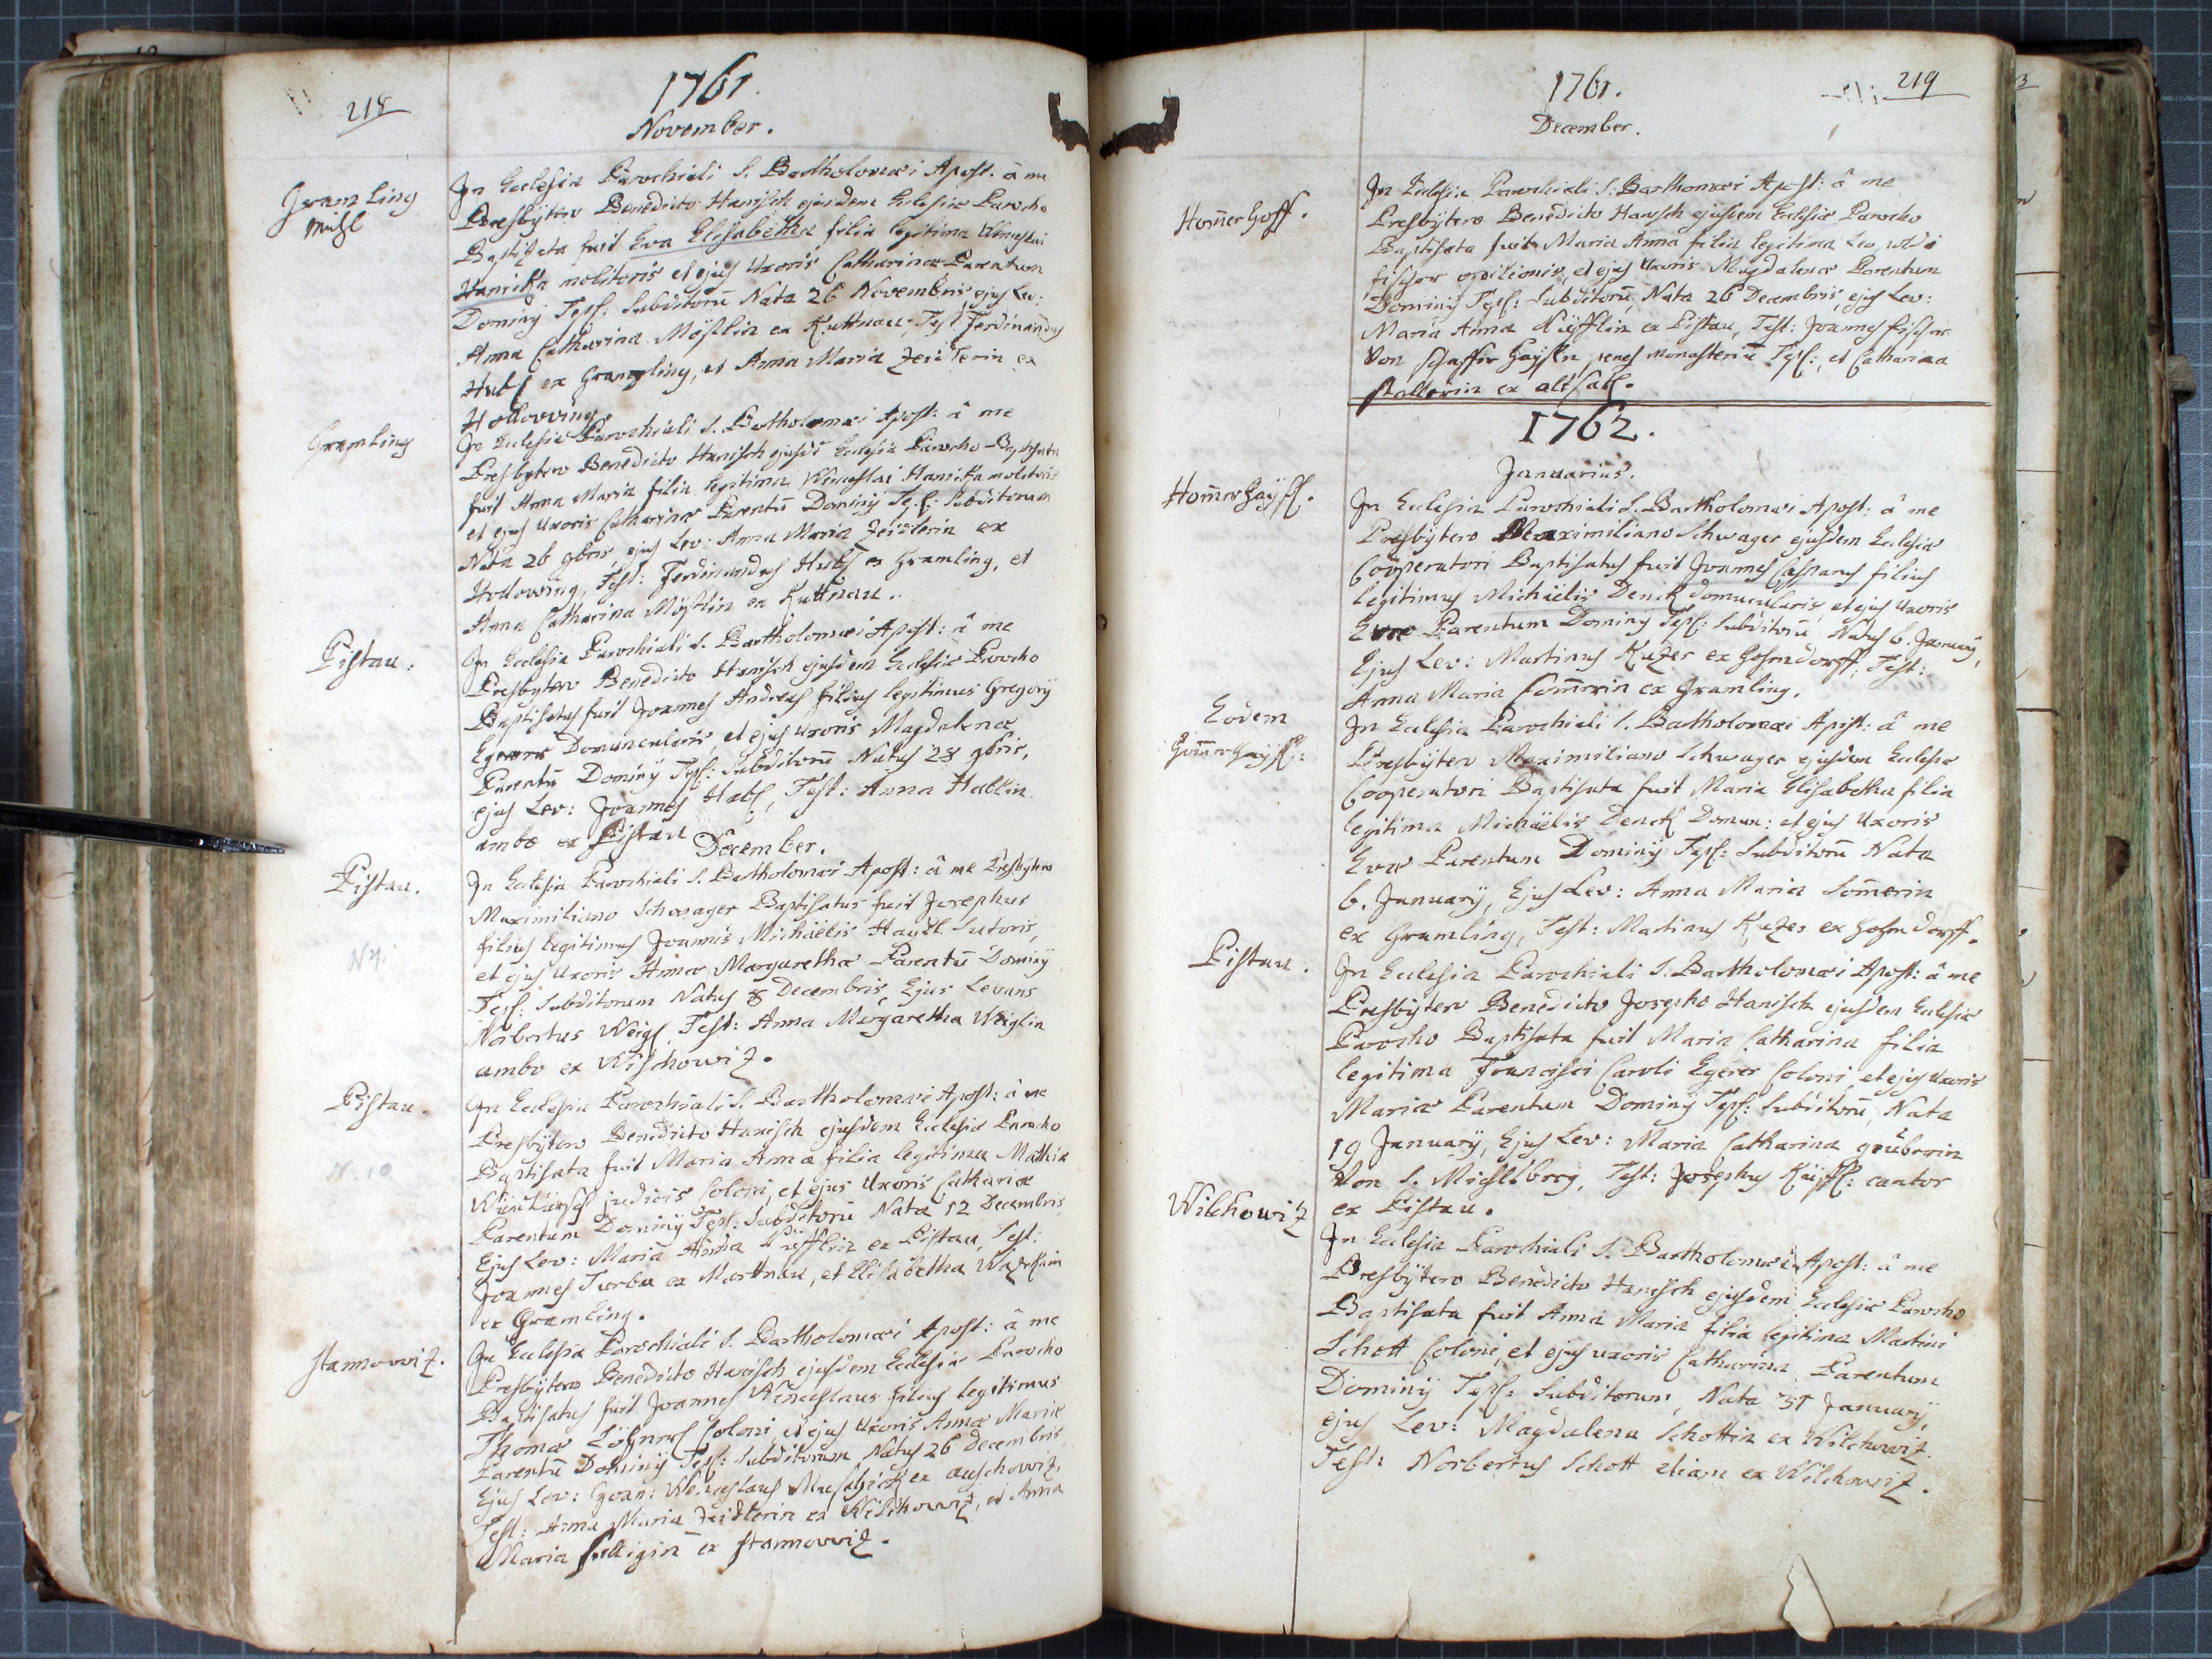 218
1761.
November.
Gramling
Mühl
In Ecclesia Parochiali S. Bartholomæi Apost: â me
Presbÿtero Benedicto Hanisch ejusdem Eclesiæ Parocho
Baptizata fuit Eva Elisabetha filia legitima Wenceslai
Hanicka molitoris et ejus Uxoris Catharinæ Parentum
Dominÿ Tepl: Subditorū Nata 26 Novembris ejus Lev:
Anna Catharina Möstlin ex Kuttnau, Test Ferdinandus
Hubl ex Gramling, et Anna Maria Zeidlerin ex
Hollowing.
Gramling
In Eclesia Parochiali S. Bartholomæi Apost: â me
Presbytero Benedicto Hanisch ejusde Eclesiæ Parocho Baptisata
fuit Anna Maria filia legitima Wenceslai Hanicka molitoris
et ejus Uxoris Catharinæ Parentū Dominÿ Tepl: Subditorum
Nata 26 9bris, ejus Lev: Anna Maria Zeidlerin ex
Hollowing, Test: Ferdinandus Hubl ex Gramling, et
Anna Catharina Möstlin ex Kuttnau.
Pistau.
In Ecclesia Parochiali S. Bartholomæi Apost: â me
Presbytero Benedicto Hanisch ejusdem Eclesiæ Parocho
Baptisatus fuit Joannes Andreas filius legitimus Gregorÿ
Egerer Domuncularis, et ejus Uxoris Magdalenæ
Parentū Dominÿ Tepl: Subditorū Natus 28 9bris,
ejus Lev: Joannes Habl, Test: Anna Hablin
ambo ex Pistau
December.
Pistau.
In Eclesia Parochiali S. Bartholomæi Apost: â me Presbÿtero
Maximiliano Schwager Baptisatus fuit Josephus
filius legitimus Joannis Michäelis Haydl Sutoris,
et ejus Uxoris Annæ Margarethæ Parentū Dominÿ
Tepl: Subditorum Natus 8 Decembris, Ejus Levans
Norbertus Weigl, Test: Anna Margaretha Weiglin
ambo ex Wischowiz.
Pistau.
N. 10
In Eclesia Parochiali S. Bartholomæi Apost: â me
Presbÿtero Benedicto Hanisch ejusdem Eclesiæ Parocho
Baptisata fuit Maria Anna filia legitima Mathiæ
judicis Coloni, et ejus Uxoris Cathariæ
Parentum Dominÿ Tepl: Subditorū Nata 12 Decembris
Ejus Lev: Maria Anna ex Pistau, Test:
Joannes Turba ex Marttnau, et Elisabetha
ex Gramling.
Stannowiz.
In Eclesia Parochiali S. Bartholomæi Apost: â me
Presbÿtero Benedicto Hanisch ejusdem Eclesiæ Parocho
Baptisatus fuit Joannes Wenceslaus filius legitimus
Thomæ Löhnert Coloni, et ejus Uxoris Annæ Mariæ
Parentū Dominÿ Tepl: Subditorum Natus 26 Decembris
Ejus Lev: Joan: Wenceslaus ex Auschowiz,
Test: Anna Maria Zeidlerin ex Wilkhowiz, et Anna
Maria ex Stannowiz.
219
1761.
December.
Hom̄erhoff.
In Eclesia Parochiali S: Barthomæi Apost: â me
Presbÿtero Benedicto Hanisch ejusdem Eclesiæ Parocho
Baptisata fuit Maria Anna filia legitima Leopoldi
fischer opilionis, et ejus Uxoris Magdalenæ Parentum
Dominÿ Tepl: Subditorū, Nata 26 Decembris, ejus Lev:
Maria Anna ex Pistau, Test: Joannes fischer
Von penes Monasteriū Tepl:, et Catharina
ex
1762.
Januarius.
Hom̄erhÿsl.
In Eclesia Parochiali S. Bartholomæi Apost: â me
Presbÿtero Maximiliano Schwager ejusdem Eclesiæ
Cooperatori Baptisatus fuit Joannes Casparus filius
legitimus Michäelis Denck domuncularis, et ejus Uxoris
Evæ Parentum Dominÿ Tepl: Subditorū Natus 6. Januarÿ,
Ejus Lev: Martinus Kuzer ex Hohndorff, Test:
Anna Maria Som̄erin ex Gramling.
Eodem
Hom̄erhaÿsl:
In Eclesia Parochiali S. Bartholomæi Apost: â me
Presbÿtero Maximiliano Schwager ejusdem Eclesiæ
Cooperatori Baptisata fuit Maria Elisabetha filia
legitima Michäelis Denck Domun: et ejus Uxoris
Evæ Parentum Dominÿ Tepl: Subditorū Nata
6. Januarÿ, Ejus Lev: Anna Maria Som̄erin
ex Gramling, Test: Martinus Kuzer ex Hohndorff.
Pistau.
In Eclesia Parochiali S. Bartholomæi Apost: â me
Presbÿtero Benedicto Josepho Hanisch ejusdem Eclesiæ
Parocho Baptisata fuit Maria Catharina filia
legitima Francisci Caroli Egerer Coloni, et ejus Uxoris
Mariæ Parentum Dominÿ Tepl: Subditorū, Nata
19 Januarÿ, Ejus Lev: Maria Catharina grüberin
Von S. Michlsberg, Test: Josephus cantor
ex Pistau.
Wilchowiz
In Eclesia Parochiali S. Bartholomæi Apost: â me
Presbÿtero Benedicto Hanisch ejusdem Eclesiæ Parocho
Baptisata fuit Anna Maria filia legitima Martini
Schott Coloni, et ejus uxoris Catharina Parentum
Dominÿ Tepl: Subditorum, Nata 31 Januarÿ,
ejus Lev: Magdalena Schottin ex Wilchowiz
Test: Norbertus Schott etiam ex Wilchowiz.